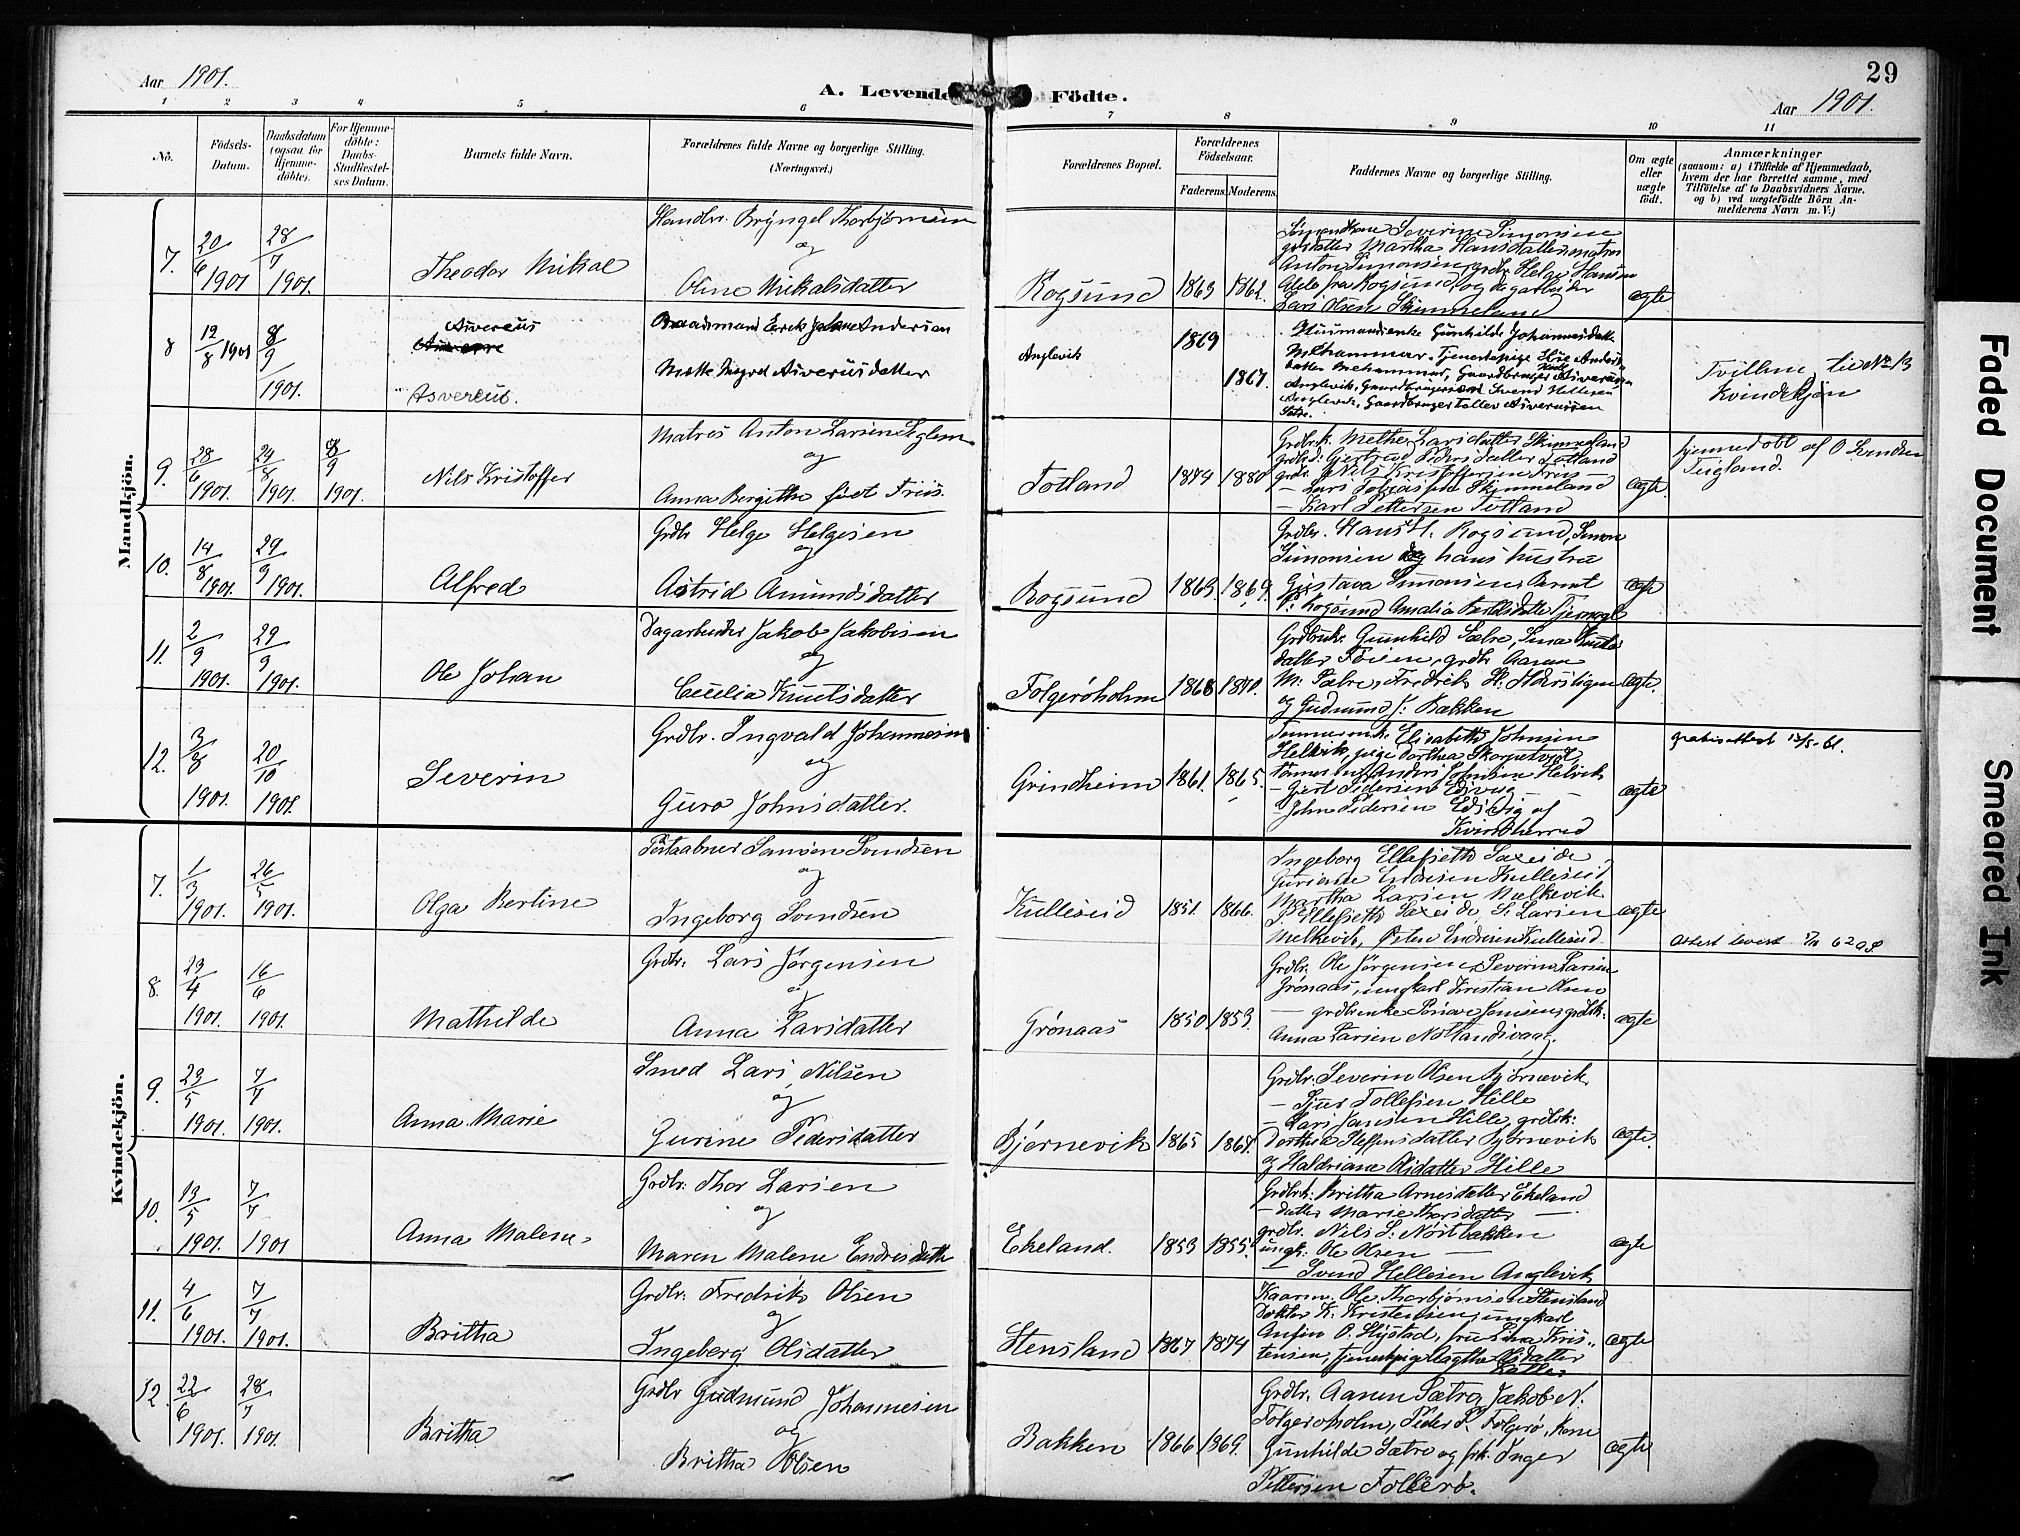 Aar 1901.
A. Levende Födte.
29
Aar 1901.
1 2 3 4 5 6 7 8 9 10 11
No.
Födsels-
Datum.
Daabsdatum
(ogsaa for
Hjemme-
döbte).
For Hjemme-
döbte:
Daabs-
Stadfæstel-
ses Datum.
Barnets fulde Navn.
Forældrenes fulde Navne og borgerlige Stilling.
(Næringsvei.)
Forældrenes Bopæl.
Forældrenes
Födselsaar.
Faderens. Moderens.
Faddernes Navne og borgerlige Stilling.
Om ægte
eller
uægte
født.
Anmærkninger
(saasom: a) i Tilfælde af Hjemmedaab,
hvem der har forrettet samme, med
Tilföielse af to Daabsvidners Navne.
og b) ved uægtefödte Börn An-
melderens Navn m. V.)
Mandkjön.
7. 20/6 1901 28/7 1901.
Theodor Mikal
Handlr. Bryngel Thorbjørnsen
og
Oline Mikalsdatter
Rogsund 1863 1862.
Anton Simonsen, grdr. Helge Hansen
Lars Olsen Skimmeland
ægte
8 12/8 1901 8/9 1901.
Asverus
Asverus.
Baadsmand Eerik Johan Andersen
Mette Ingrd Asverusdatter
Anglevik 1869 1867.
Husmandsenke Gunhilde Johannesdatt.
Mehammar, Tjenestepige Else Anders
datter Mehammar, Gaardbruger
Anglevik, Gaardbruger Svend Hellesen
Anglevik, Gaardbruger Tollev Asverussen
Tvilling til No 13
Kvindekjøn
9. 28/6 1901. 24/8 1901. 8/9 1901.
Nils Kristoffer
Matros Anton Larsen
og
Anna Bergithe født Friis.
Totland 1874 1880
Grdbrk. Methe Larsdatter Skimmeland
grdbrd. Gjertrud Pedersdatter Totland
grdbr. Nils Kristoffersen Friis
— Lars Tobias Skimmeland
— Karl Pettersen Totland
ægte
hjemmedøbt af O Svendsen
Tugland.
10. 14/8 1901. 29/9 1901.
Alfred
Grdbr Helge Helgesen
og
Astrid Amundsdatter
Rogsund 1863. 1869.
Grdbr. Hans H. Rogsund, Simon
Simonsen og hans hustru
Gustava Simonsen, Bernt
Rogsund Amalia
ægte
11. 2/9 1901. 29/9 1901.
Ole Johan
Dagarbeider Jakob Jakobsen
og
Cecelia Knutsdatter
Folgerøholm 1868 1871.
Grdbruk. Gunhild Sætre,
datter Føien, grdbr Aamun
M. Sætre, Fredrik
og Gudmund J: Bakken
ægte.
12. 3/8 1901. 20/10 1901.
Severin
Grdbr. Ingvald Johannesen
og
Guro Johnsdatter.
Grindheim 1861. 1865.
Elisabeth Johnsen
Helvik, pige Dorthea
Anders Johnsen Helvik
— Gjert Pedersen Edsvig —
— John Pedersen Edsvig af
Kvindherred
ægte
gratisattest 12/5-61.
Kvindekjön.
7. 1/3 1901. 26/5 1901.
Olga Bertine
Postaabner Samson Svendsen
og
Ingeborg Svendsen
Kulleseid 1851. 1866.
Ingeborg Ellefseth Saxeide
Guriane Endresen Kulleseid
Martha Larsen Mælkevik
Ellefseth Saxeide, S. Larsen
Mælkevik, Peter Endresen Kulleseid
ægte
8. 23/4 1901. 16/6 1901.
Mathilde
Grdbr. Lars Jørgensen
og
Anna Larsdatter
Grønaas 1850 1853.
Grdbr. Ole Jørgensen, Severine Larsen
Grønaas, ungkarl Kristian Olsen
Anna Larsen Notlandsvaag.
ægte
9. 23/5 1901. 7/7 1901.
Anna Marie
Smed Lars Nilsen
og
Gurine Pedersdatter
Bjørnevik 1865 1867.
Grdbr. Severin Olsen Bjørnevik
— Sjur Tollefsen Hille
— Lars Jansen Hille, grdbk:
Dorthea Steffensdatter Bjørnevik
og Haldriane Olsdatter Hille
ægte.
10. 13/5 1901. 7/7 1901
Anna Malene
Grdbr: Thor Larsen
og
Maren Malene Endresdatter
Ekeland. 1853 1855.
Grdbrk: Britha Arnesdatter Ekeland
— datter Marie Thorsdatter —
grdbr. Nils S. Nøstbakken
ungk: Ole Olsen —
— Svend Hellesen Anglevik
ægte
11. 4/6 1901. 7/7 1901.
Britha
Grdbr: Fredrik Olsen
og
Ingeborg Olsdatter
Stensland 1867. 1874
Kaarm. Ole Thorbjørnsen Stensland
Doktor K. Kristensen, ungkarl
Anfin O. Stystad, fru Lina Kris-
tensen, tjenestepige Olsdatter
ægte
12. 22/6 1901. 28/7 1901.
Britha
Grdbr Gudmund Johannesen
og
Britha Olsen
Bakken 1866 1869.
Grdbr. Aamun Sætre, Jakob N.
Folgerøholm, Peder P. Folgerø, Kone
Gunhilde Sætre og frk. Inger
Pettersen Folgerø.
ægte
Faded Document
Smeared Ink